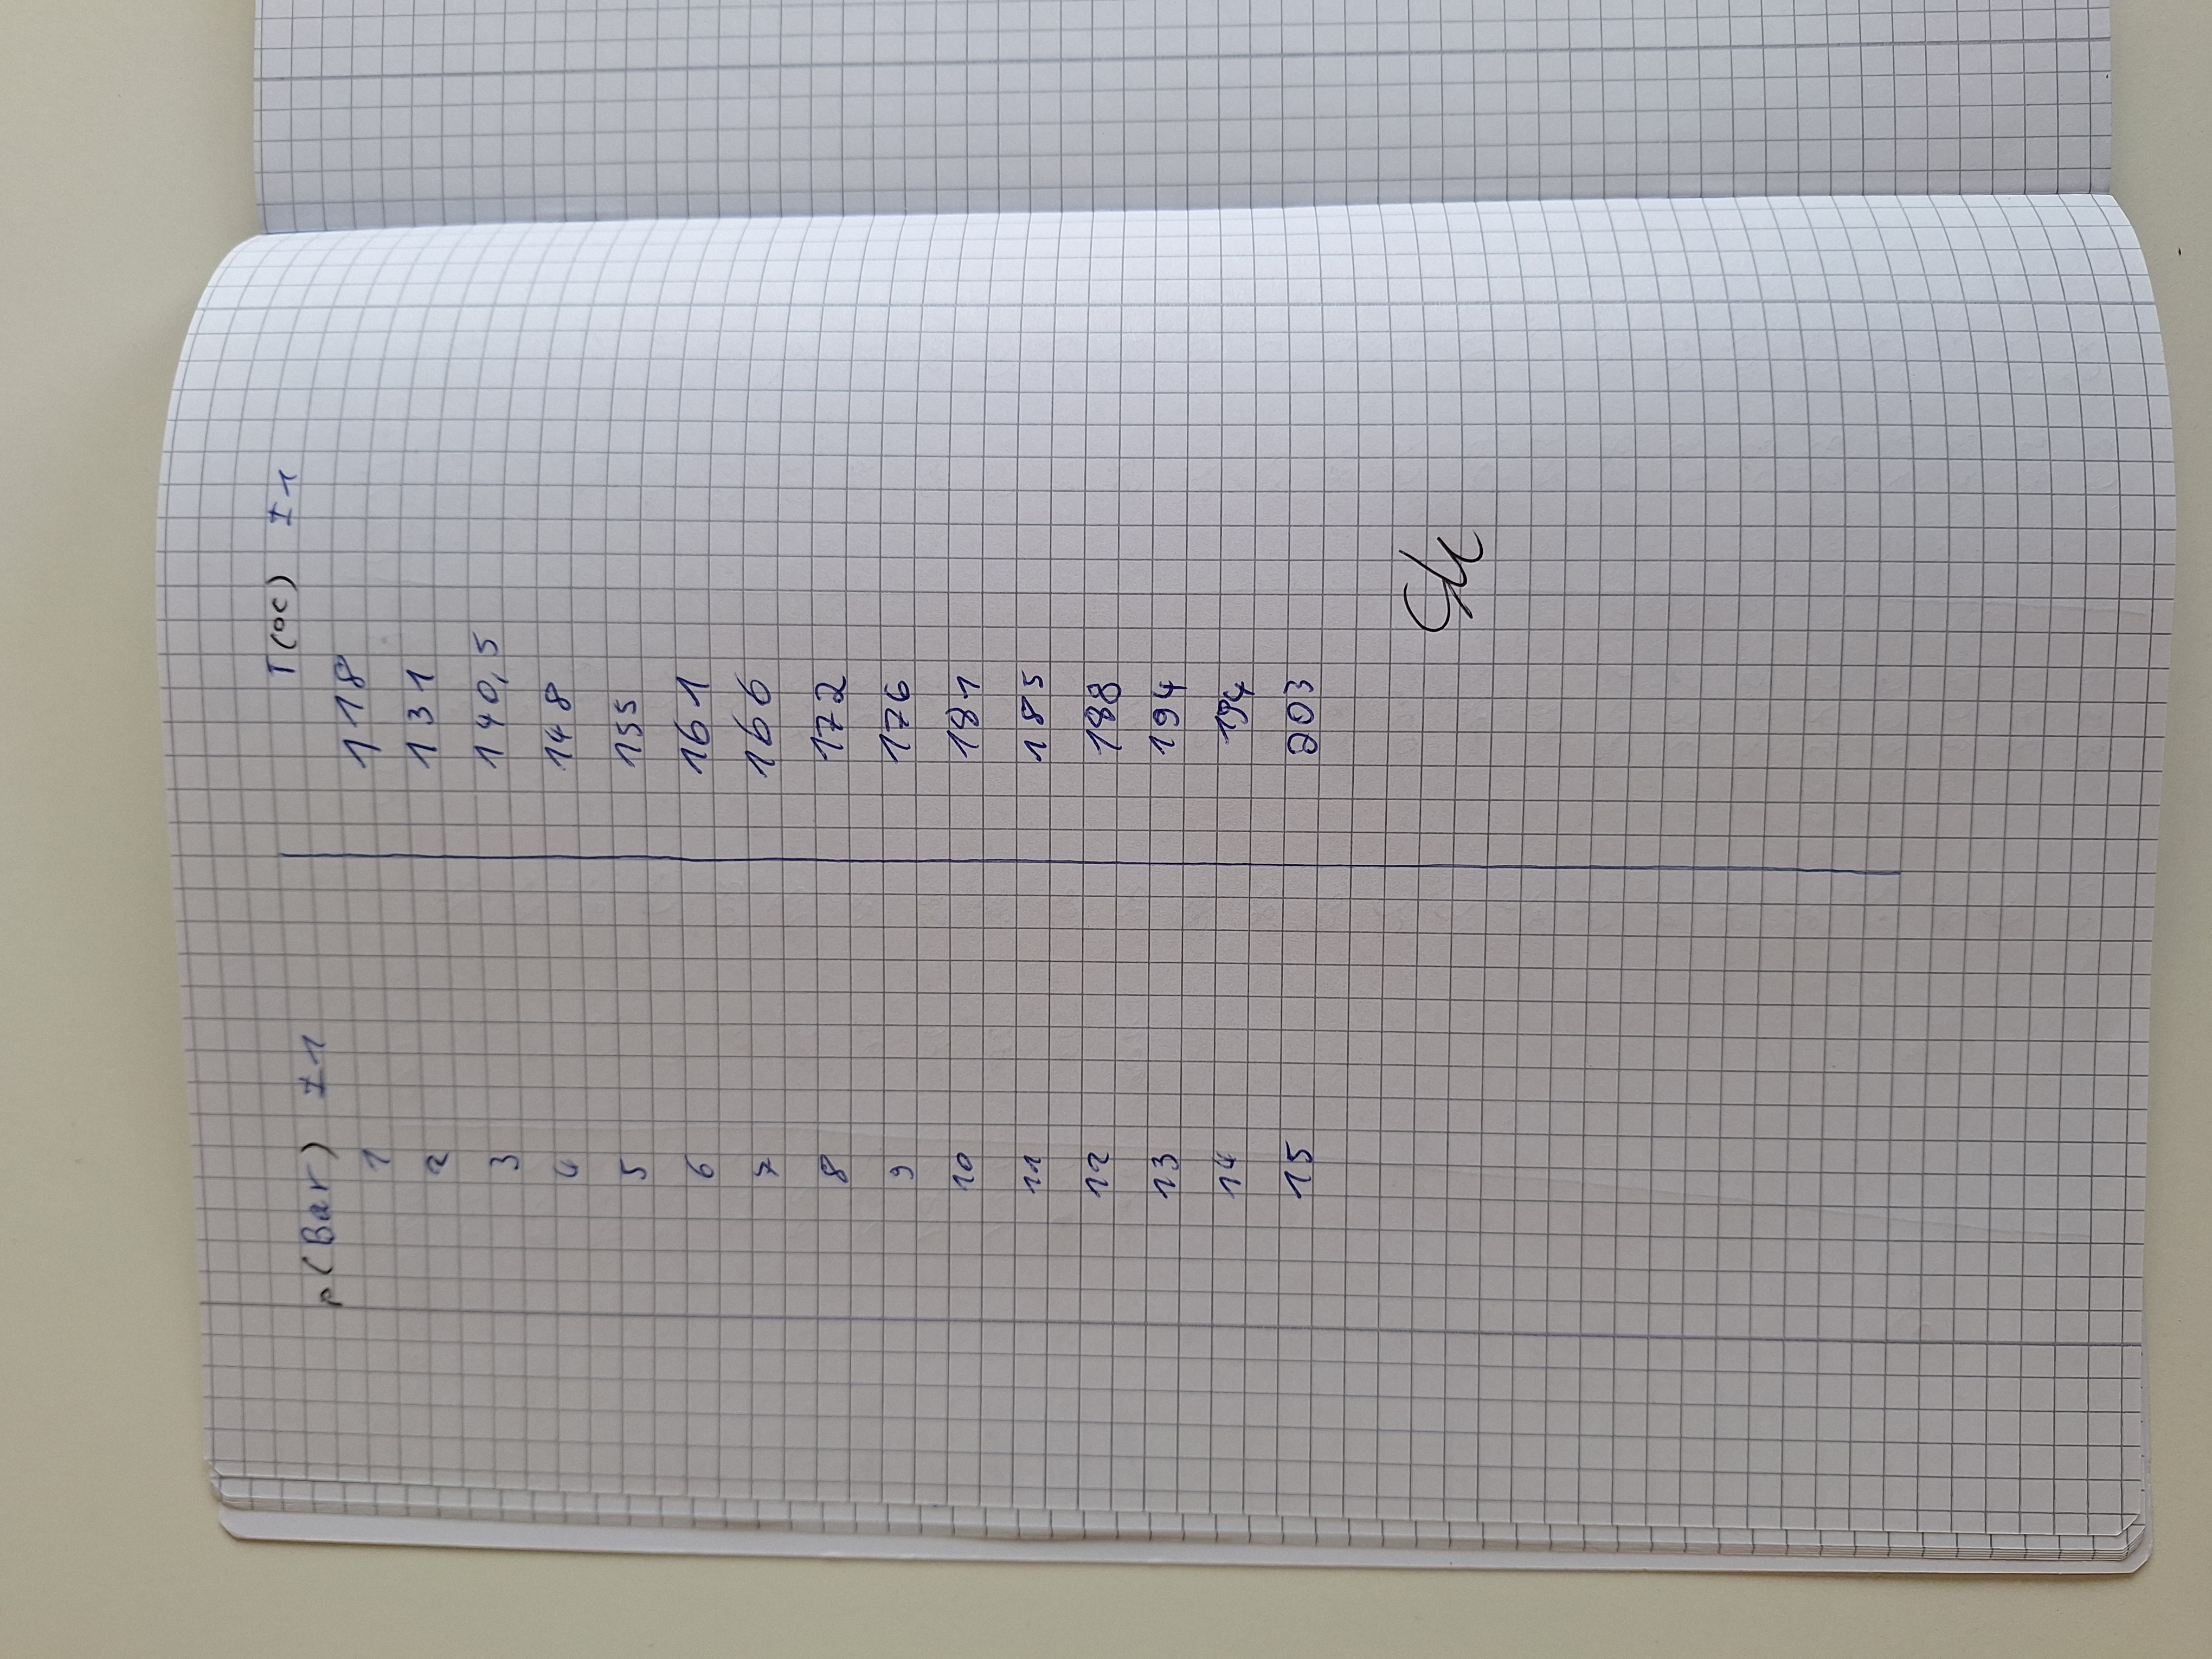 p(Bar) I1 T(°C) I1
1 118
2 131
3 140,5
4 148
5 155
6 161
7 166
8 172
9 176
10 181
11 185
12 188
13 194
14 194
15 203